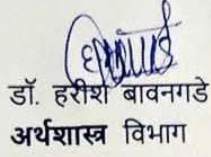 डॉ. हरीश बावनगडे
अर्थशास्त्र विभाग